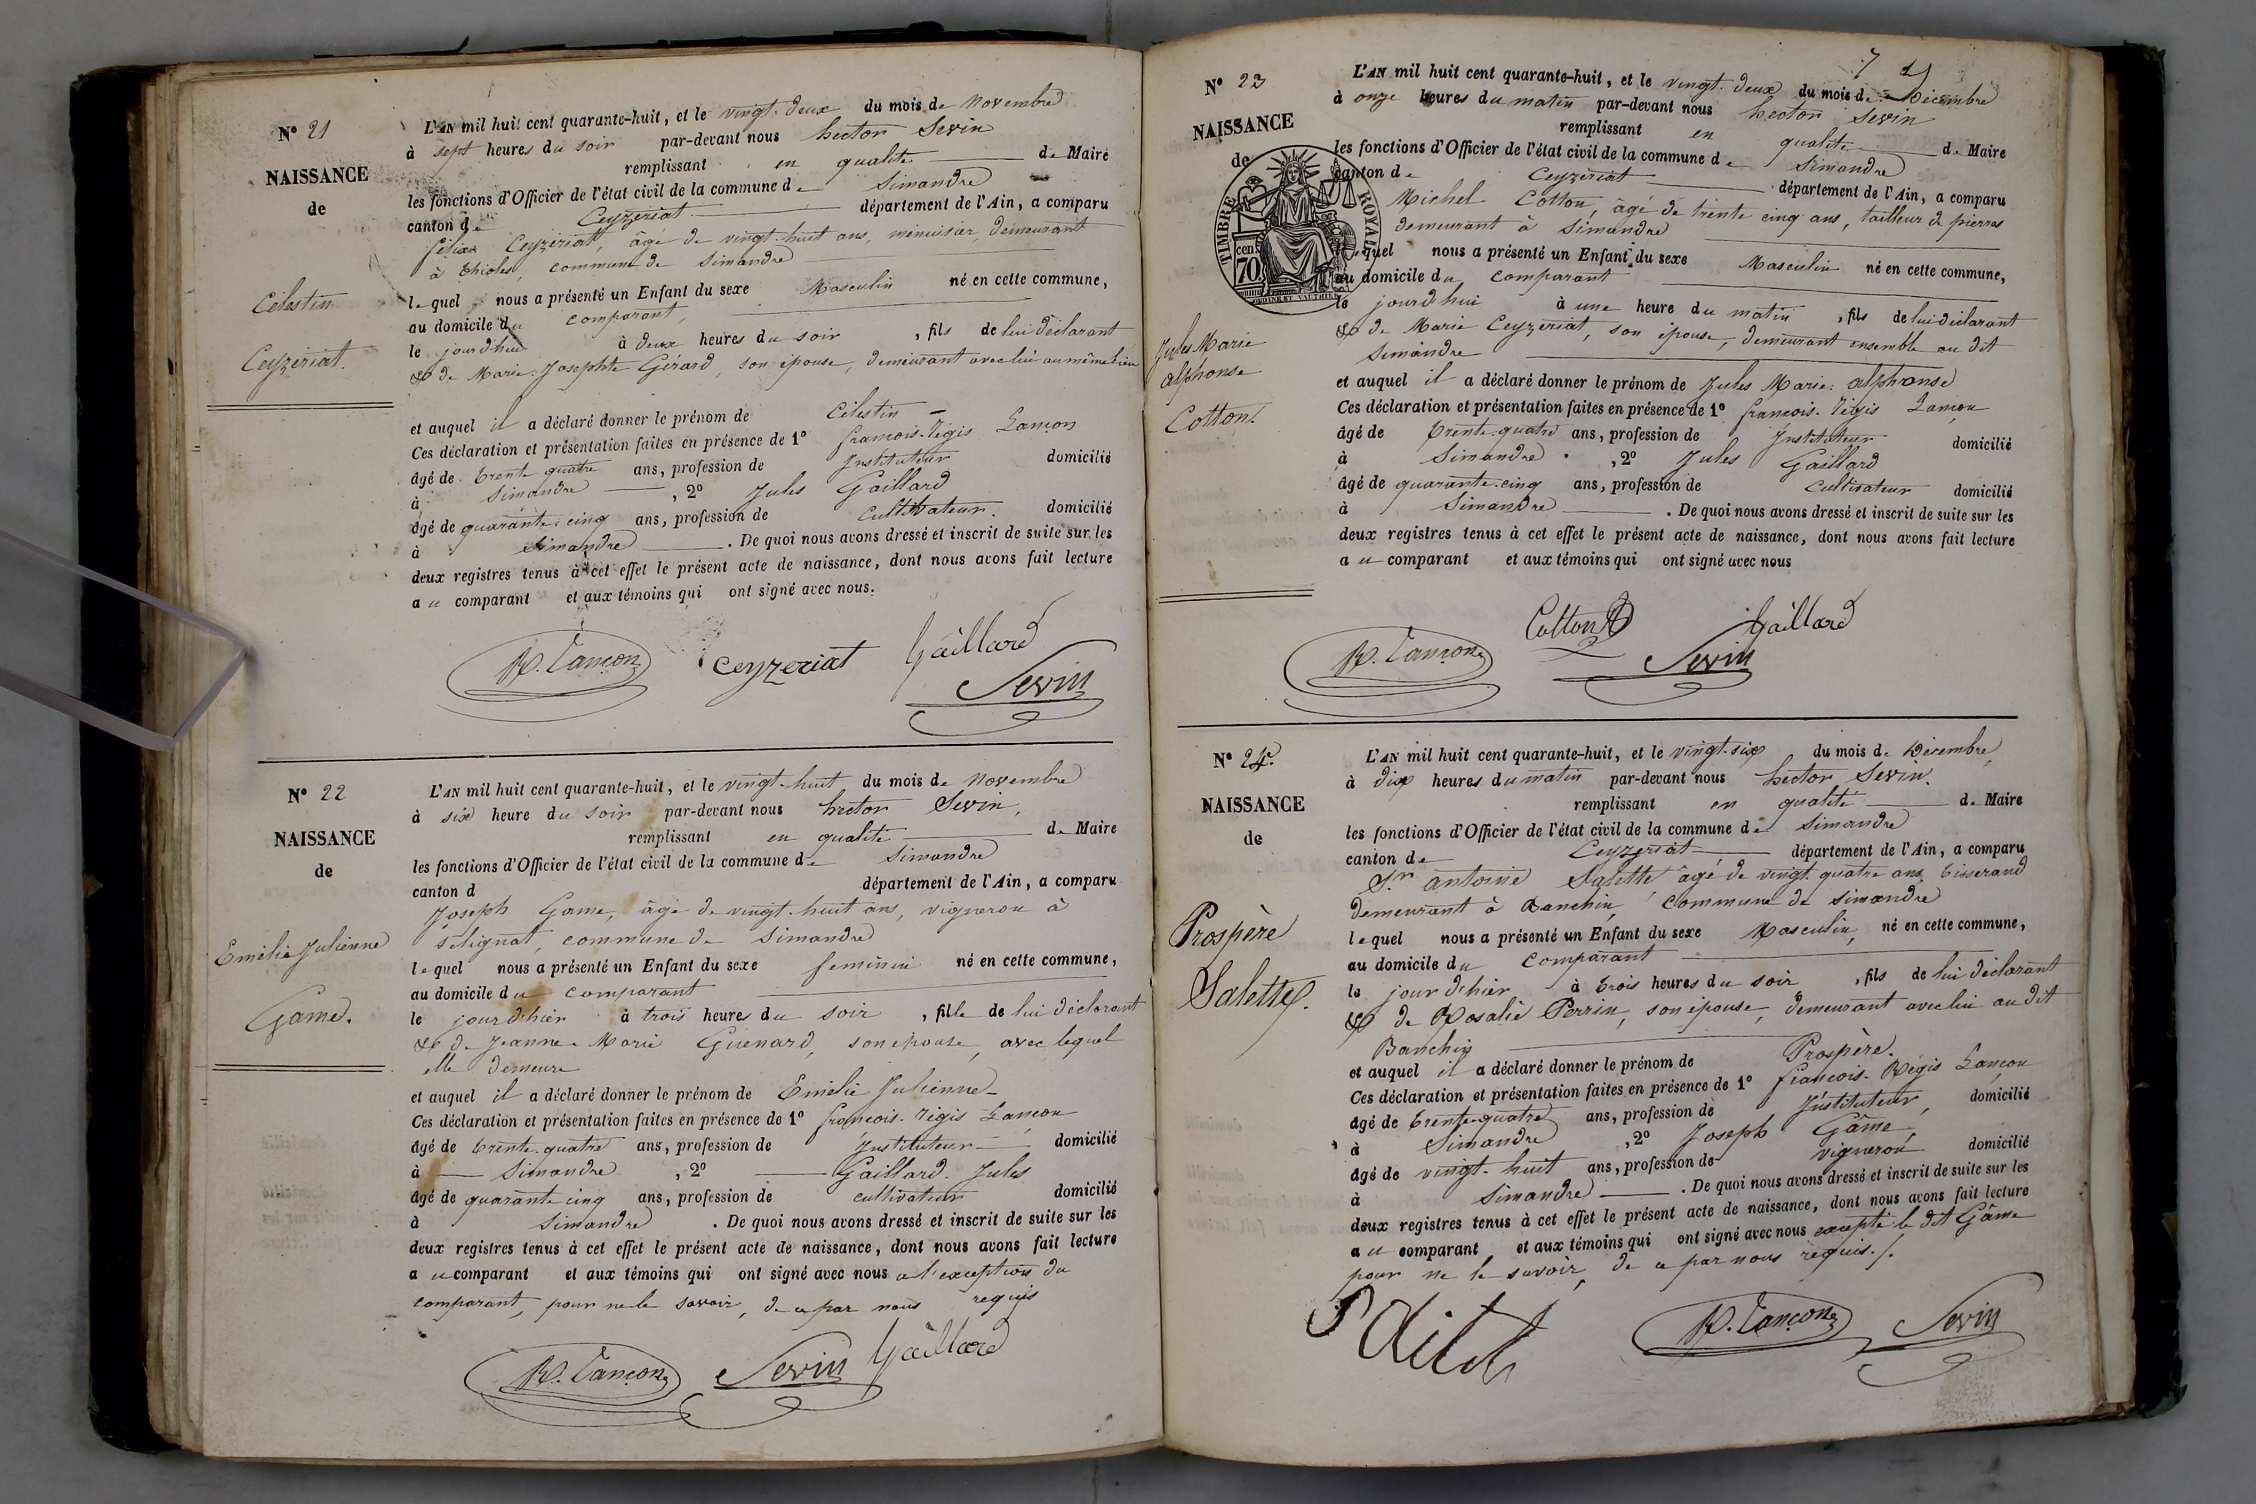 N° 21
NAISSANCE
de
Célestin
Ceyzériat.
L'AN mil huit cent quarante-huit, et le vingt-deux du mois de Novembre
à sept heures du soir par-devant nous hector Sevin
remplissant en qualité de Maire
les fonctions d'Officier de l'état civil de la commune de Simandre
canton de Ceyzeriat département de l'Ain, a comparu
félix Ceyzériat, âgé de vingt-huit ans, menuisier, demeurant
à thioles, commune de Simandre
lequel nous a présenté un Enfant du sexe Masculin né en cette commune,
au domicile du comparant,
le jourd'hui à deux heures du soir, fils de lui déclarant
& de Marie-Josephte Gérard, son épouse, demeurant avec lui au même lieu
et auquel il a déclaré donner le prénom de Célestin
Ces déclaration et présentation faites en présence de 1° francois-régis Lançon
âgé de trente-quatre ans, profession de Instituteur domicilié
à Simandre, 2° Jules Gaillard
âgé de quarante-cinq ans, profession de cultivateur. domicilié
à Simandre. De quoi nous avons dressé et inscrit de suite sur les
deux registres tenus à cet effet le présent acte de naissance, dont nous avons fait lecture
au comparant et aux témoins qui ont signé avec nous.
R. Lançon ceyzeriat Gaillard
Sevin
N° 22
NAISSANCE
de
Emélie Julienne
Game.
L'AN mil huit cent quarante-huit, et le vingt-huit du mois de Novembre
à six heure du soir par-devant nous hector Sevin,
remplissant en qualité de Maire
les fonctions d'Officier de l'état civil de la commune de Simandre
canton d département de l'Ain, a comparu
Joseph Game, âgé de vingt-huit ans, vigneron à
Sélignat, commune de Simandre
lequel nous a présenté un Enfant du sexe feminin né en cette commune,
au domicile du comparant
le jour d'hier à trois heures du soir, fille de lui déclarant
& de Jeanne-Marie Guenard, son épouse, avec lequel
elle demeure
et auquel il a déclaré donner le prénom de Emélie Julienne
Ces déclaration et présentation faites en présence de 1° francois-régis Lançon
âgé de trente-quatre ans, profession de Instituteur domicilié
à Simandre, 2° Gaillard Jules
âgé de quarante cinq ans, profession de cultivateur domicilié
à Simandre. De quoi nous avons dressé et inscrit de suite sur les
deux registres tenus à cet effet le présent acte de naissance, dont nous avons fait lecture
au comparant et aux témoins qui ont signé avec nous a l'exception du
comparant, pour ne le savoir, de ce par nous requis
R. Lançon Sevin Gaillard
7
N° 23
NAISSANCE
de
TIMBRE ROYAL
cen. 70
Jules Marie
alphonse
Cotton.
L'AN mil huit cent quarante-huit, et le vingt-deux du mois de Décembre
à onze heures du matin par-devant nous hector Sevin
remplissant en qualité de Maire
les fonctions d'Officier de l'état civil de la commune de Simandre
canton de Ceyzériat département de l'Ain, a comparu
Michel Cotton, âgé de trente cinq ans, tailleur de pierres
demeurant à Simandre
lequel nous a présenté un Enfant du sexe Masculin né en cette commune,
au domicile du comparant
le jourd'hui à une heure du matin, fils de lui déclarant
& de Marie Ceyzeriat, son épouse, demeurant ensemble au dit
Simandre
et auquel il a déclaré donner le prénom de Jules Marie alphonse
Ces déclaration et présentation faites en présence de 1° francois-régis Lançon
âgé de trente-quatre ans, profession de Instituteur domicilié
à Simandre, 2° Jules Gaillard
âgé de quarante-cinq ans, profession de cultivateur domicilié
à Simandre. De quoi nous avons dressé et inscrit de suite sur les
deux registres tenus à cet effet le présent acte de naissance, dont nous avons fait lecture
au comparant et aux témoins qui ont signé avec nous
R. Lançon Cotton Sevin Gaillard
N° 24.
NAISSANCE
de
Prospère
Salette.
L'AN mil huit cent quarante-huit, et le vingt-six du mois de Décembre,
à dix heures du matin par-devant nous hector Sevin.
remplissant en qualité de Maire
les fonctions d'Officier de l'état civil de la commune de Simandre
canton de Ceyzeriat département de l'Ain, a comparu
Sr. antoine Salette âgé de vingt-quatre ans, tisserand
demeurant à Banchin, commune de Simandre
lequel nous a présenté un Enfant du sexe Masculin, né en cette commune,
au domicile du comparant
le jour d'hier à trois heures du soir, fils de lui déclarant
& de Rosalie Perrin, son épouse, demeurant avec lui au dit
Banchin
et auquel il a déclaré donner le prénom de Prospère.
Ces déclaration et présentation faites en présence de 1° francois-Régis Lançon
âgé de trente-quatre ans, profession de Instituteur, domicilié
à Simandre, 2° Joseph Gâme,
âgé de vingt-huit ans, profession de vigneron domicilié
à Simandre. De quoi nous avons dressé et inscrit de suite sur les
deux registres tenus à cet effet le présent acte de naissance, dont nous avons fait lecture
au comparant et aux témoins qui ont signé avec nous excepté le dit Gâme
pour ne le savoir, de ce par nous requis./.
R. Lançon Sevin